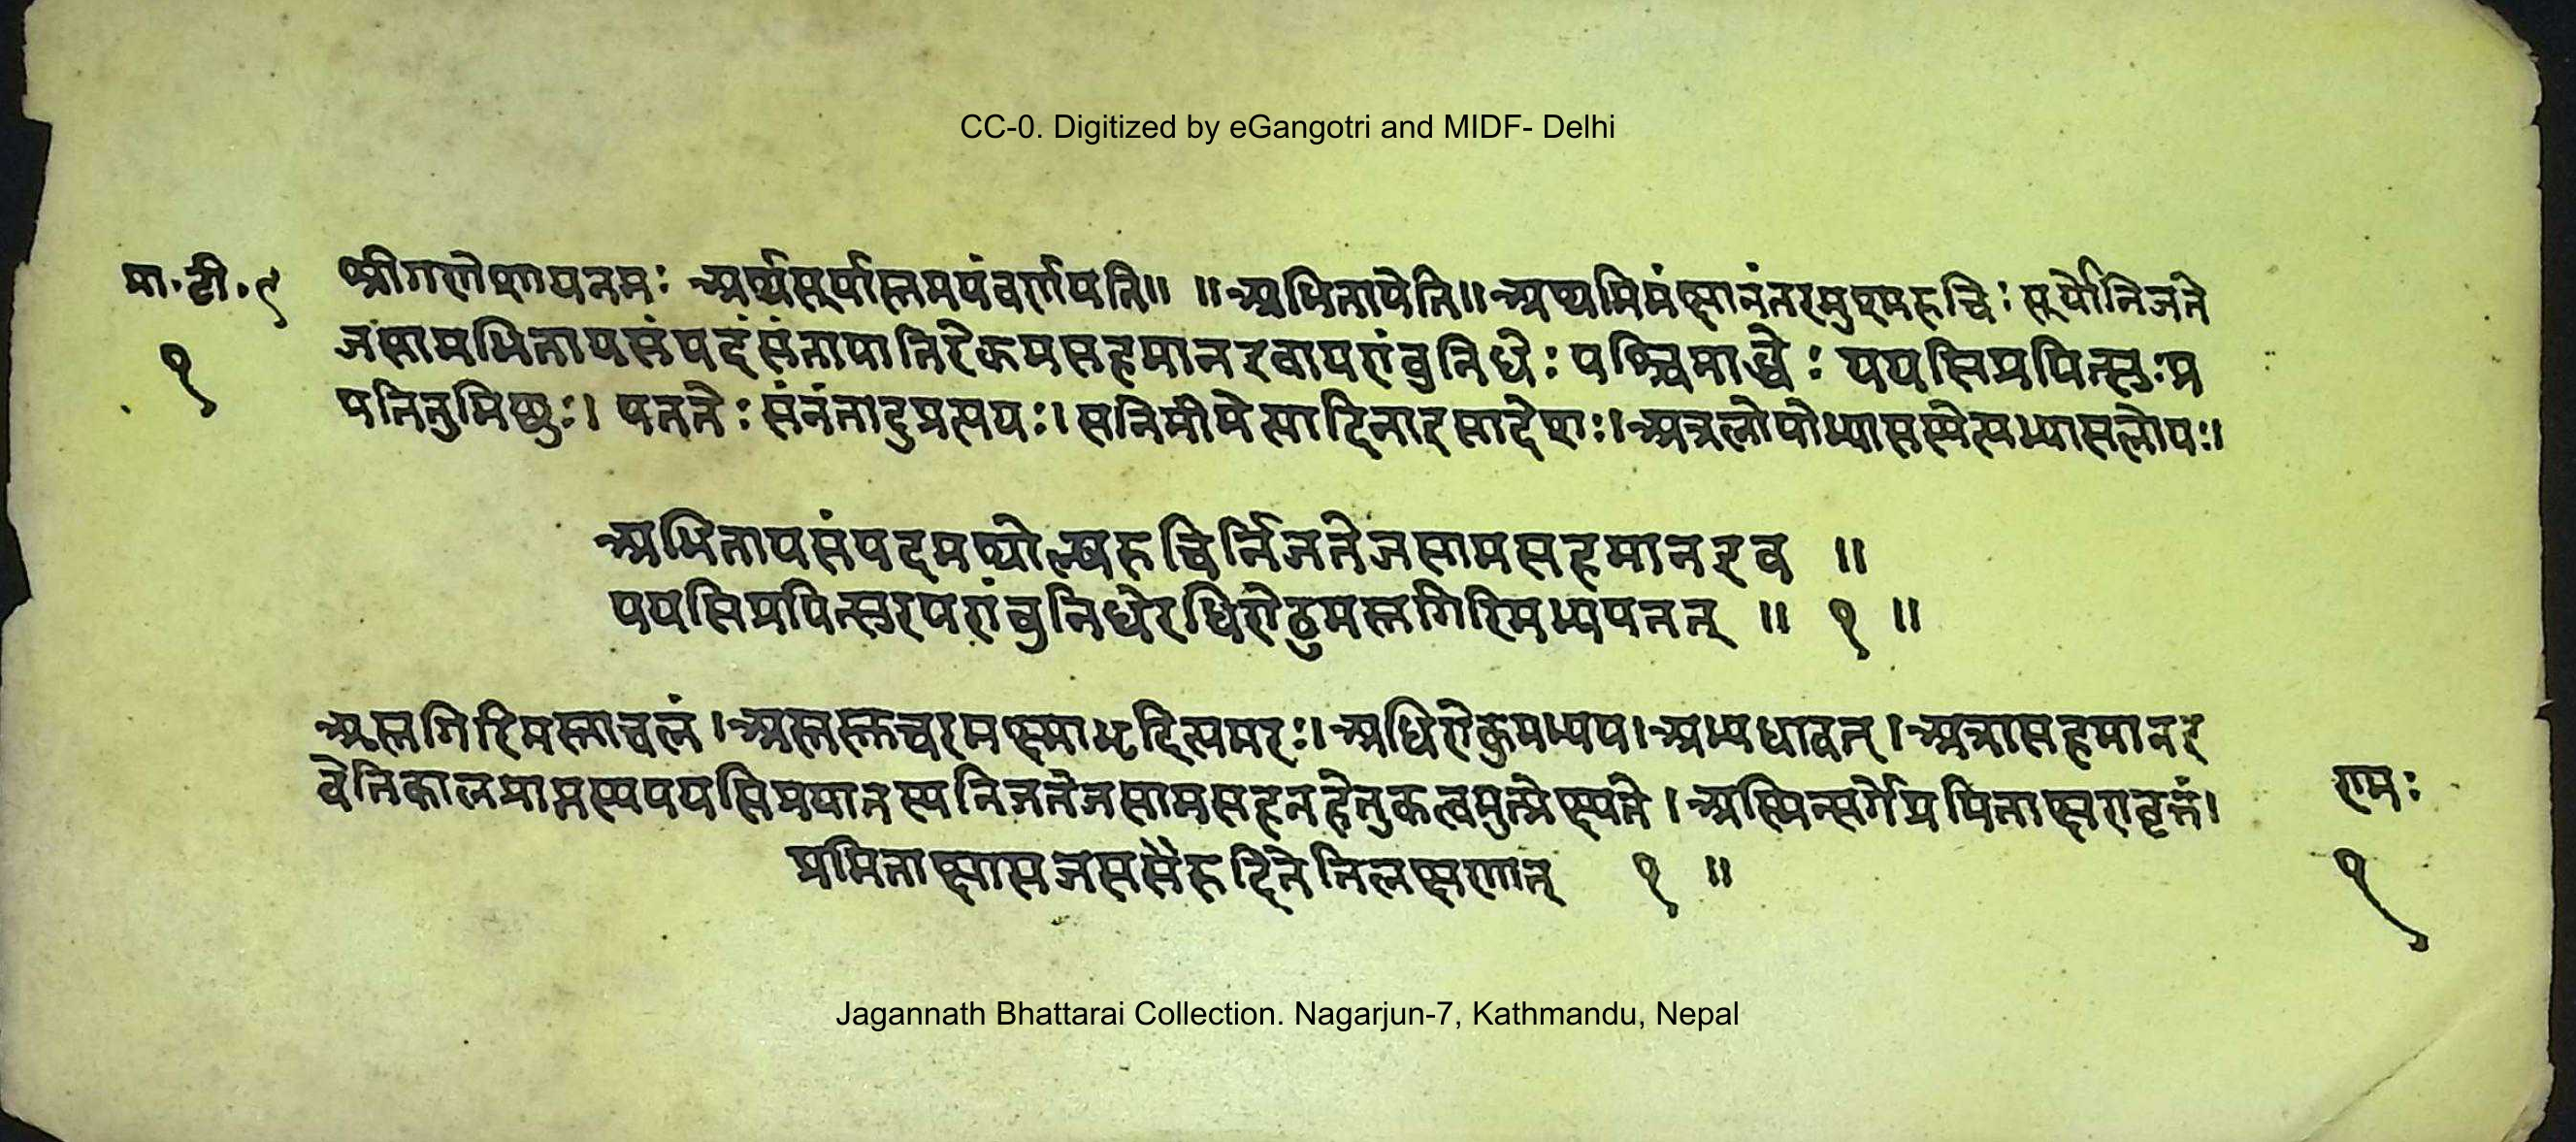 CC-0. Digitized by eGangotri and MIDF- Delhi
मा॰टी॰९
१
श्रीगणेशायनमः अथसूर्यास्तमयंवर्णयति॥ ॥अभितापेति॥अथाभिमंक्षानंतरमुष्मरुचिः सूर्योनिजते
जसामभितापसंपदंसंतापातिरेकमसहमानइवापरांबुनिधेः पश्चिमाब्धेः पयसिप्रपित्सुःप्र
पतितुमिछुः। पततेः संनंतादुप्रत्ययः। सनिमीमेत्यादिनाइसादेशः।अत्रलोपोभ्यासस्येत्यभ्यासलोपः।
अभितापसंपदमथोल्षरुचिर्निजतेजसामसहमानइव ॥
पयसिप्रपित्सुरपरांबुनिधेरधिरोढुमस्तगिरिमभ्यपतत् ॥ १ ॥
अस्तगिरिमस्ताचलं।अस्तस्तुचरमक्ष्माभृदित्यमरः।अधिरोढुमभ्यप।अभ्यधावत्।अत्रासहमानइ
वेतिकालप्राप्तस्यपयसिप्रपातस्यनिजतेजसामसहनहेतुकत्वमुत्प्रेक्ष्यते।अस्मिन्सर्गेप्रमिताक्षरावृत्तं।
प्रमिताक्षासजससैरुदितेतिलक्षणात् १ ॥
रामः
१
Jagannath Bhattarai Collection. Nagarjun-7, Kathmandu, Nepal